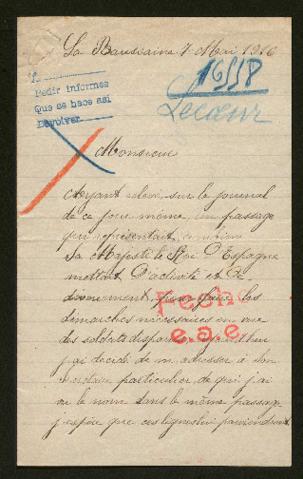 La Baussaine 7 Mai 1916
16518
Lecœur
Pedir informes
Que se hace asi
Devolver
Monsieur
Ayant relevé sur le journal
de ce jour même, un passage
qui représentait
Sa Majesté le Roi d'Espagne
mettait d'activité et de
dévouement, pour faire les
démarches nécessaires en vue
des soldats disparus
j'ai décidé de m'adresser à son
secrétaire particulier de qui j'ai
vu le nom dans le même passage
j'espère que ces lignes lui parviendront
Fecho
e.a.e.